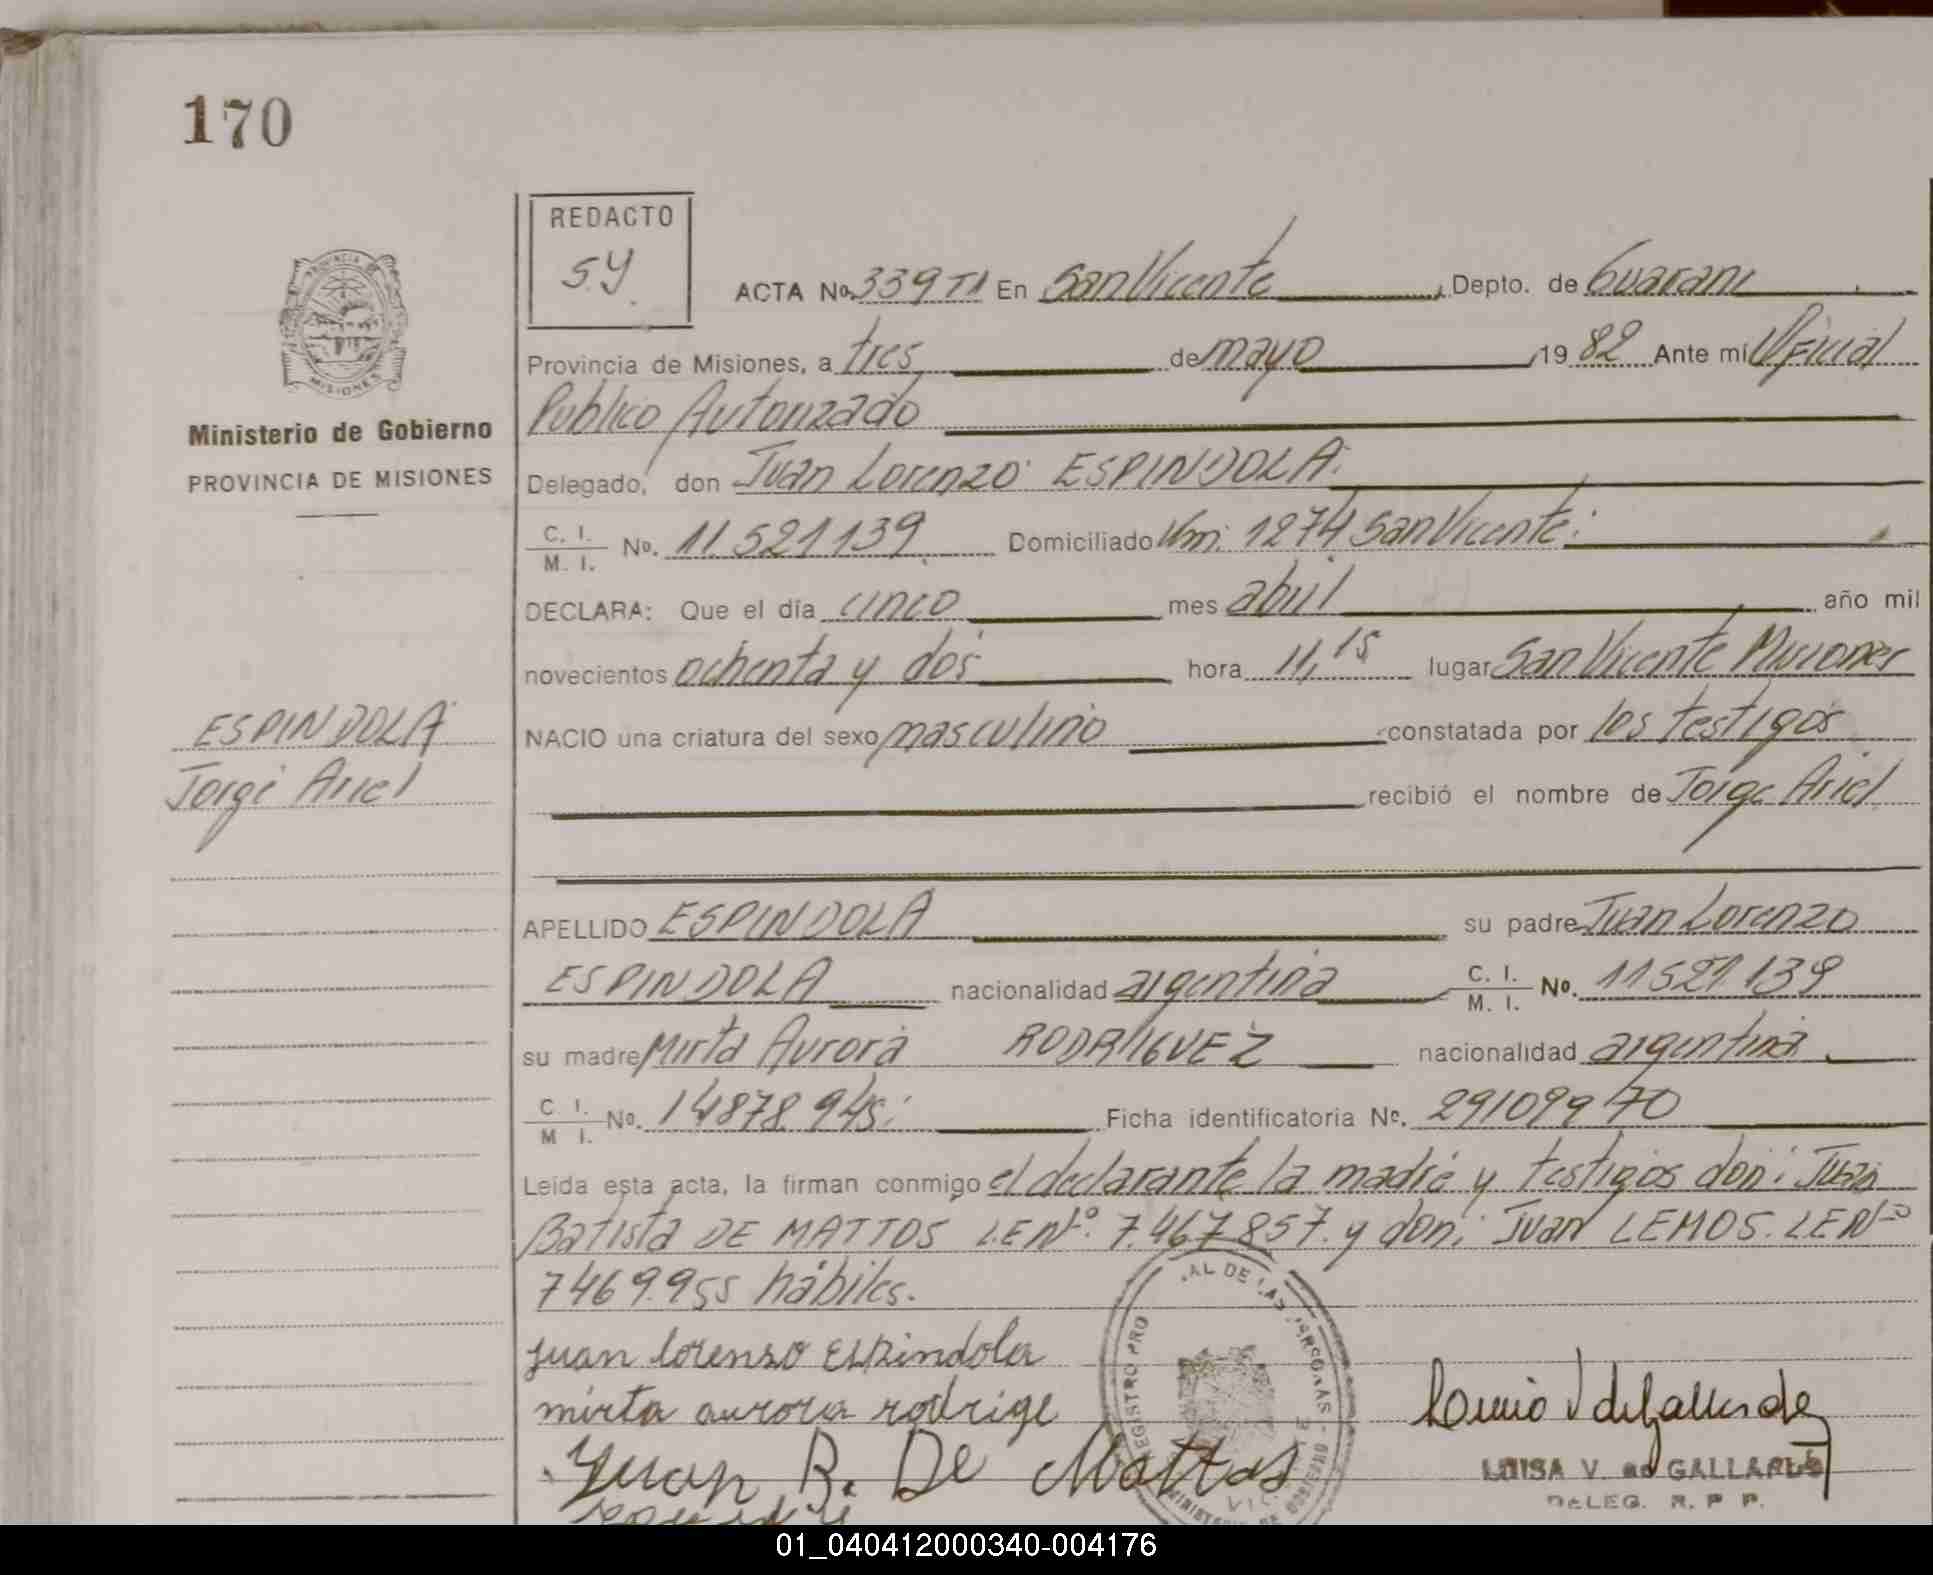 170
REDACTO
S.Y.
PROVINCIA DE
MISIONES
Ministerio de Gobierno
PROVINCIA DE MISIONES
ACTA No. 339 T1 En San Vicente, Depto. de Guarani
Provincia de Misiones, a tres de mayo 19 82 Ante mi Oficial
Publico Autorizado
Delegado, don Juan Lorenzo ESPINDOLA.
C. I. / M. I. No. 11.521139 Domiciliado Km. 1274 San Vicente.
DECLARA: Que el día cinco mes abril año mil
novecientos ochenta y dos hora 11,15 lugar San Vicente Misiones
NACIO una criatura del sexo masculino constatada por los testigos
recibió el nombre de Jorge Ariel
ESPINDOLA
Jorge Ariel
APELLIDO ESPINDOLA su padre Juan Lorenzo
ESPINDOLA nacionalidad argentina C. I. / M. I. No. 11521.139
su madre Mirta Aurora RODRIGUEZ nacionalidad argentina
C. I. / M I. No. 14878.945. Ficha identificatoria No. 29109970
Leída esta acta, la firman conmigo el declarante la madre y testigos don: Juan
Batista DE MATTOS L.E Nº. 7.467.857. y don: Juan LEMOS. L.E Nº
7469.955 hábiles.
juan lorenzo Espindola
mirta aurora rodrige
Juan B. De Mattos
LUISA V. de GALLARDO
DELEG. R. P. P.
REGISTRO PRO AL DE LAS PERSONAS
MINISTERIO DE GOBIERNO
01_040412000340-004176